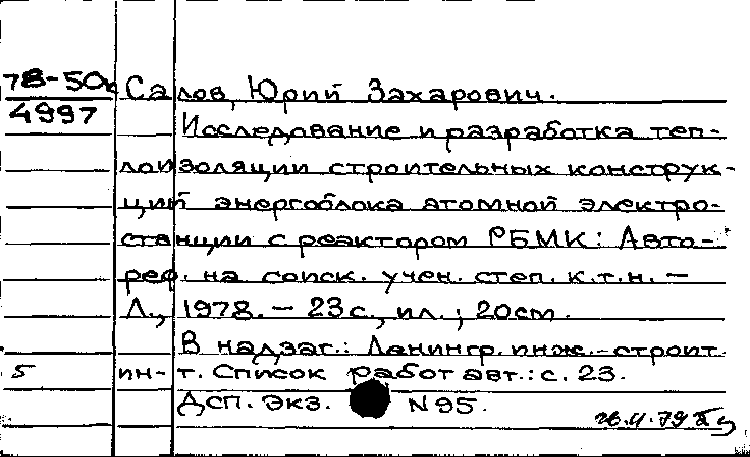 78-50к Салов, Юрий Захарович.
4997
Исследование и разработка теп-
лоизоляции строительных конструк-
ций энергоблока атомной электро-
станции с реактором РБМК: Авто-
реф. на соиск. учен. степ. к.т.н. –
Л., 1978. – 23 с., ил.; 20см.
В надзаг.: Ленингр. инж.-строит.
5 ин-т. Список работ авт.: с. 23.
ДСП. Экз. N 95.